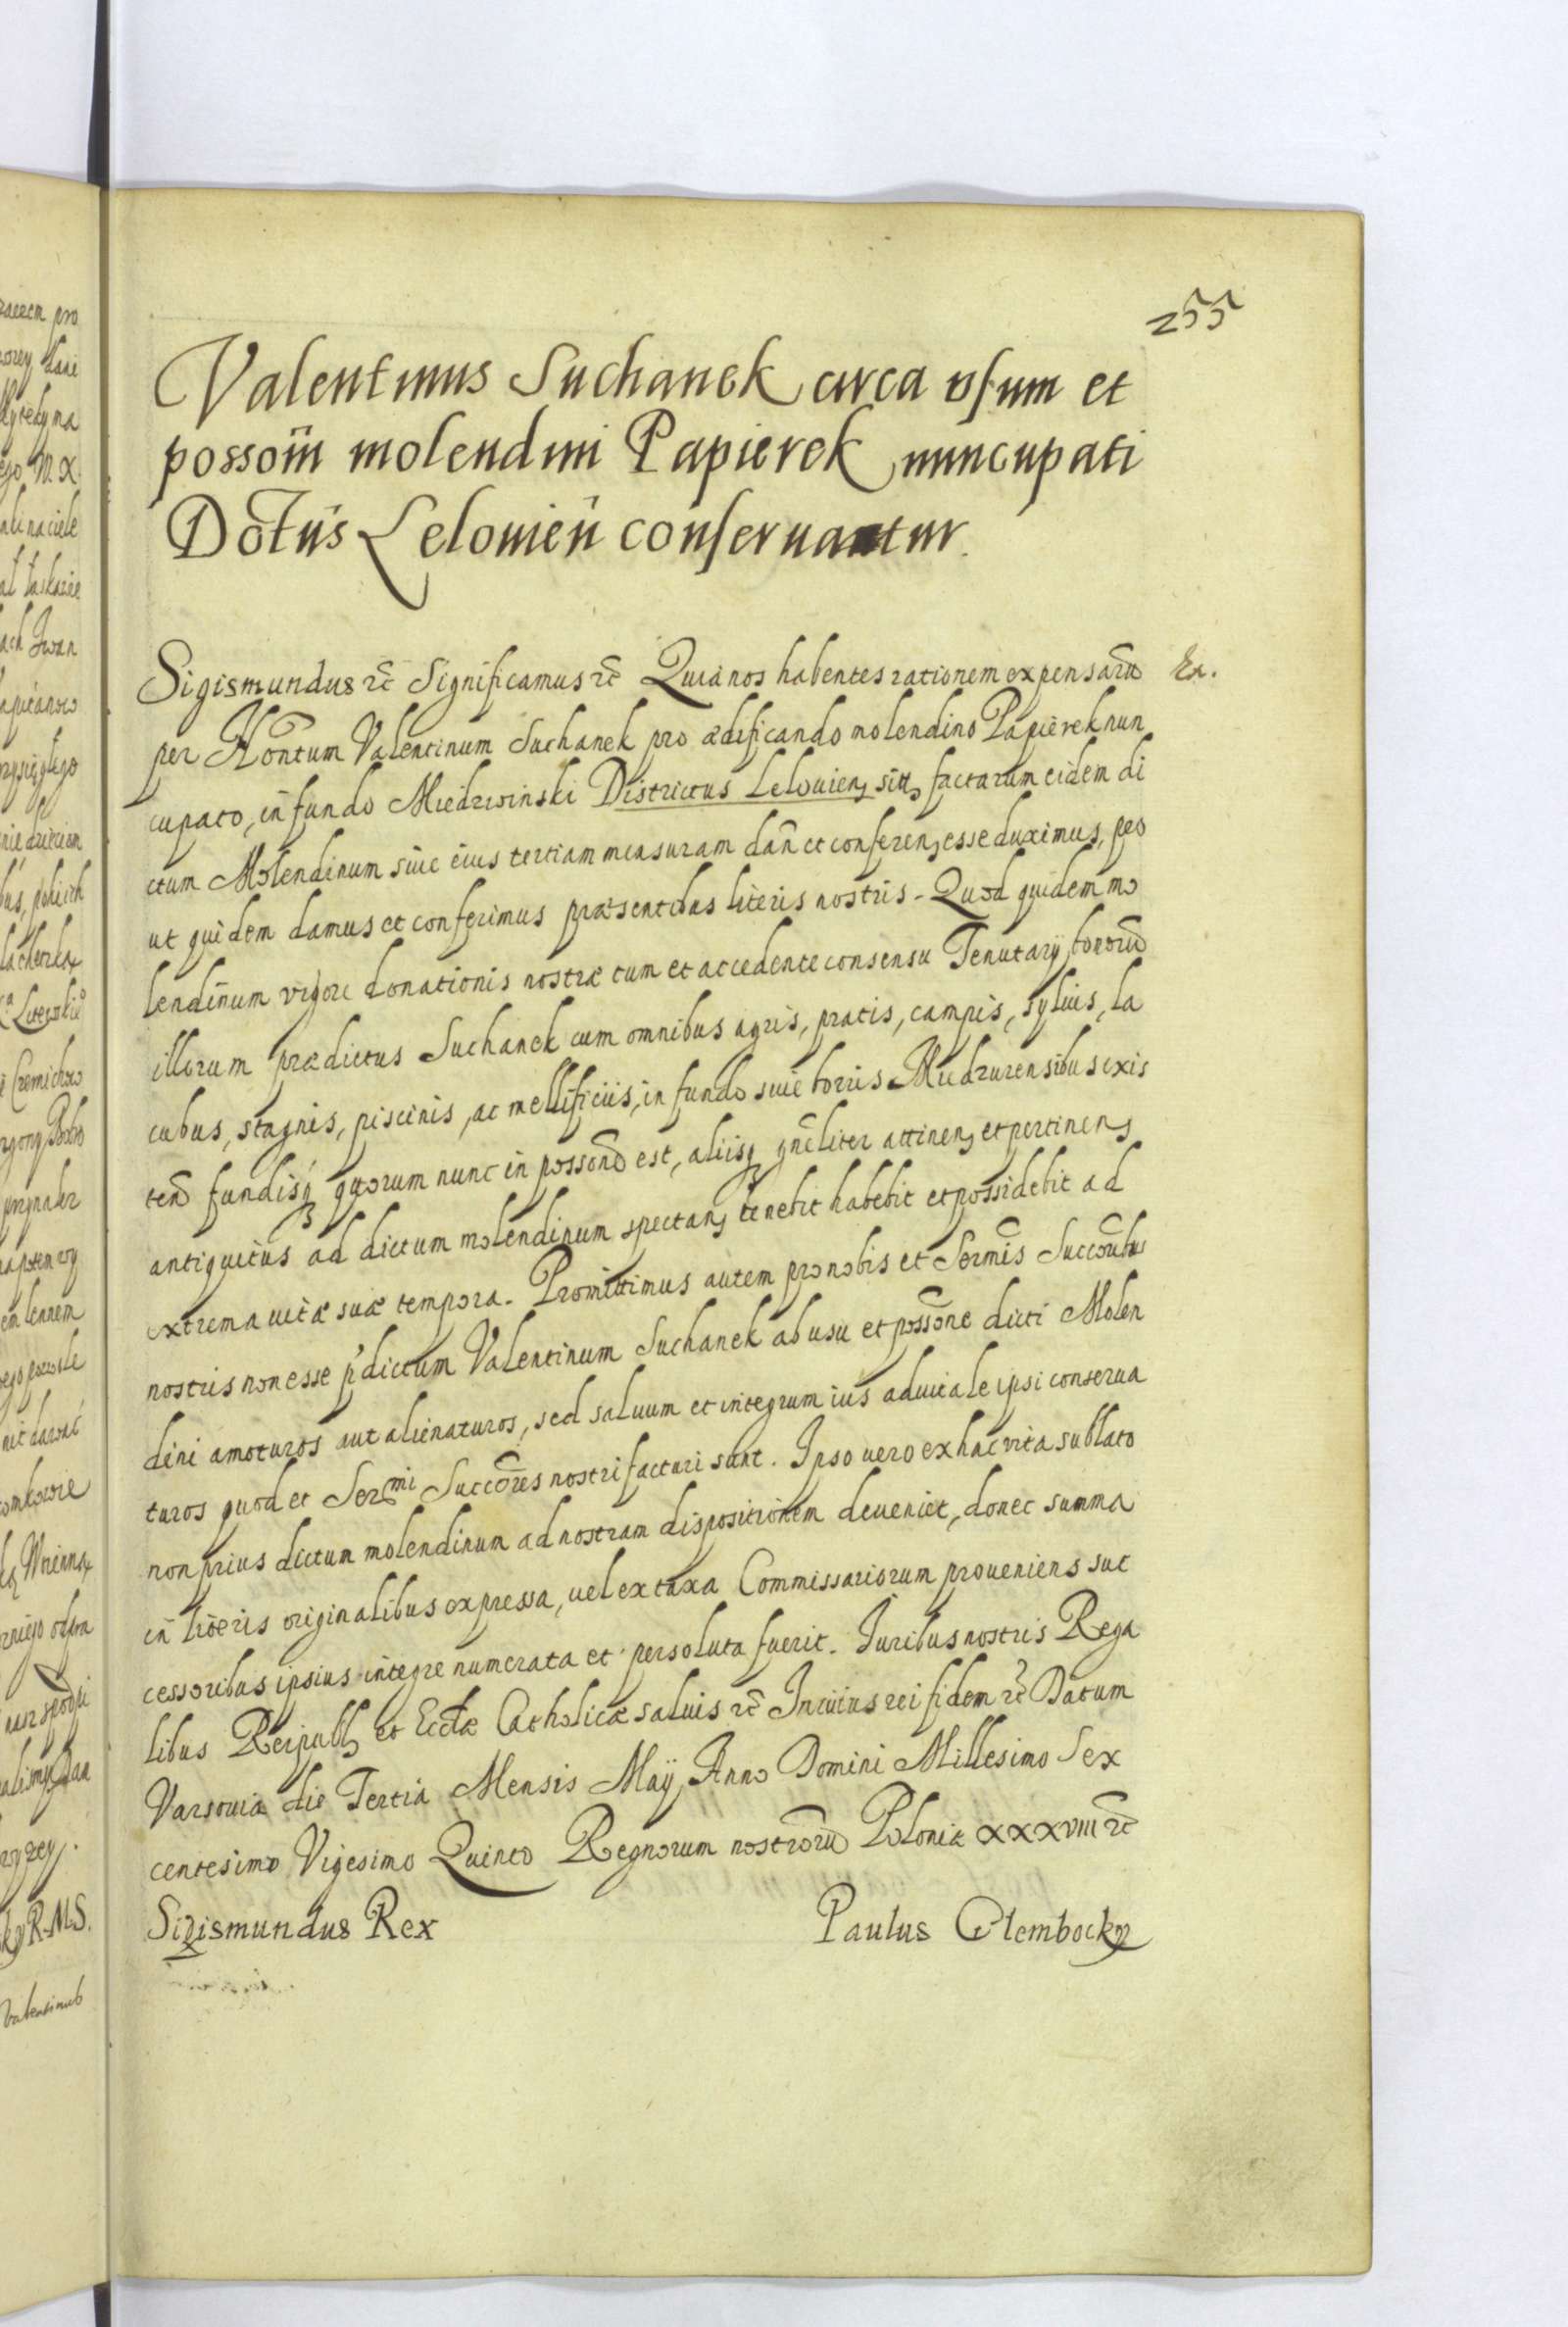 255
Valentinus Suchanek circa vsum et
possoñi molendini Papierek nuncupati
Dotūs Lelouieñ conseruatur.
Sigismundus rc̃ Significamus rc̃ Quia nos habentes rationem expensarũ
Ex.
per Hontum Valentinum Suchanek pro ædificando molendino Papierek nun
cupato, in fundo Miedzwinski Districtus Lelouien, sitt, factarum eidem di
ctum Molendinum siue eius tertiam mensuram dañ et conferen, esse duximus, pro
ut quidem damus et conferimus præsentibus literis nostris. Quod quidem mo
lendinum vigore donationis nostræ tum et accedente consensu Tenutarij bonorũ
illorum prædictus Suchanek cum omnibus agris, pratis, campis, syluis, la
cubus, stagnis, piscinis, ac mellificiis, in fundo siue borris Miedzurensibus exis
teñ fundisq quorum nunc in possonẽ est, aliisq gñcliter attinen, et pertinen,
antiquitus ad dictum molendinum spectan, tenebit habebit et possidebit ad
extrema uitæ suæ tempora. Promittimus autem pro nobis et Sermis Succorıbus
nostris non esse p̃dictum Valentinum Suchanek ab usu et possõne dicti Molen
dini amoturos aut alienaturos, sed saluum et integrum ius aduitale ipsi conserua
turos quod et Sermi Succores nostri facturi sunt. Ipso uero ex hac vita sublato
non prius dictum molendinum ad nostram dispositionem deueniet, donec summa
in literis originalibus expressa, uel ex taxa Commissariorum proueniens suc
cessoribus ipsius integre numerata et persoluta fuerit. Iuribus nostris Rega
libus Reipubl, et Eccłæ Catholicæ saluis rc̃ In cuius rei fidem rc̃ Datum
Varsouiæ die Tertia Mensis Maij Anno Domini Millesimo Sex
centesimo Vigesimo Quinto Regnorum nostrorũ Poloniæ XXXVIII rc̃
Sigismundus Rex
Paulus Glembocky